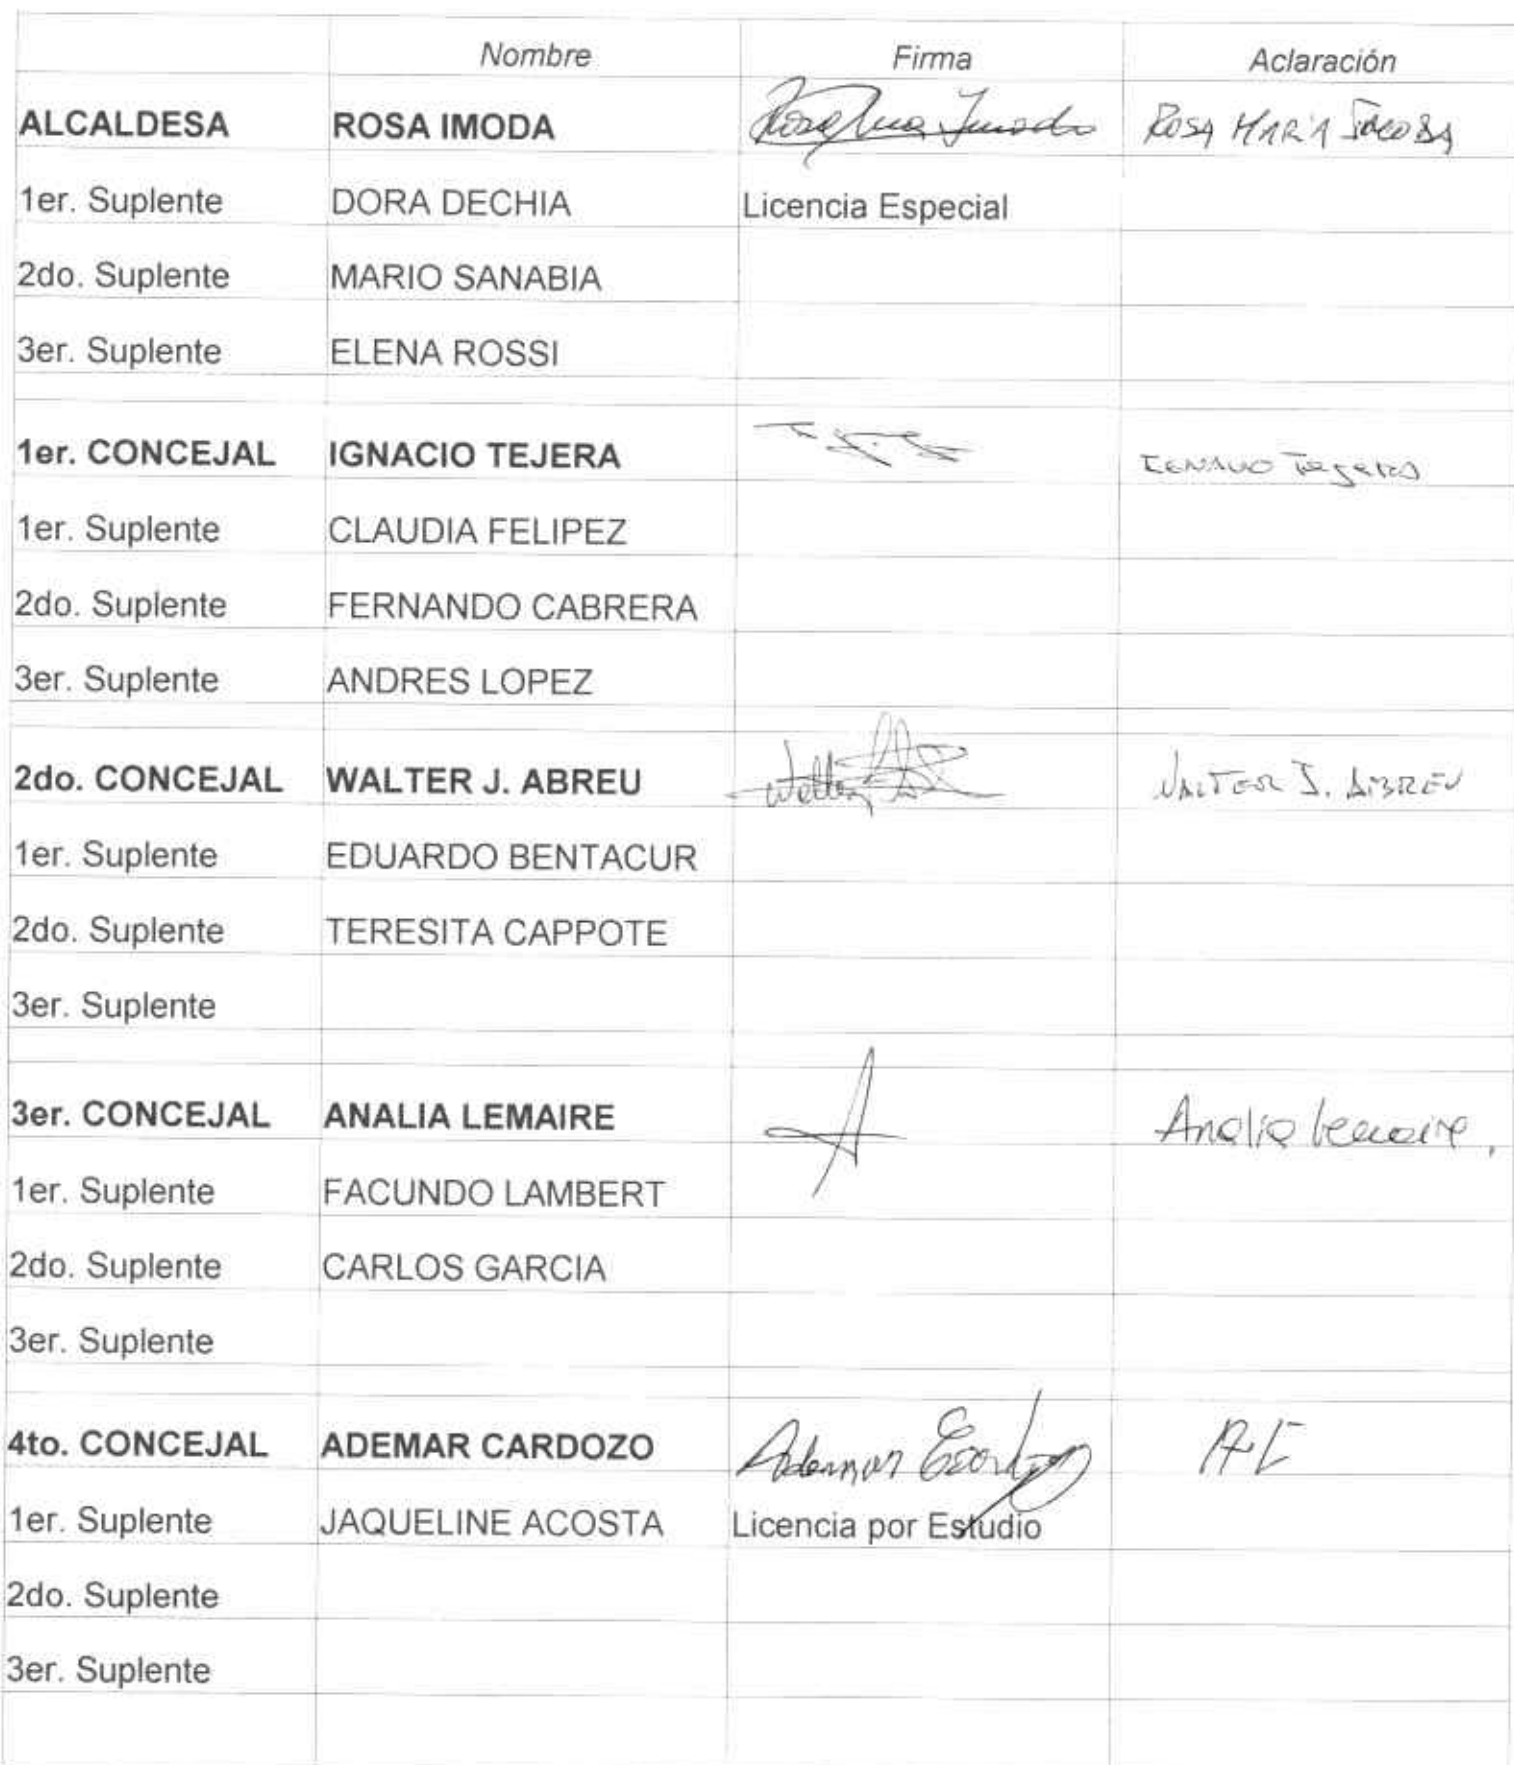 Nombre Firma Aclaración
ALCALDESA ROSA IMODA ROSA MARÍA
1er. Suplente DORA DECHIA Licencia Especial
2do. Suplente MARIO SANABIA
3er. Suplente ELENA ROSSI
1er. CONCEJAL IGNACIO TEJERA IGNACIO Tejera
1er. Suplente CLAUDIA FELIPEZ
2do. Suplente FERNANDO CABRERA
3er. Suplente ANDRES LOPEZ
2do. CONCEJAL WALTER J. ABREU Walter WALTER J. ABREU
1er. Suplente EDUARDO BENTACUR
2do. Suplente TERESITA CAPPOTE
3er. Suplente
3er. CONCEJAL ANALIA LEMAIRE Analia Lemaire.
1er. Suplente FACUNDO LAMBERT
2do. Suplente CARLOS GARCIA
3er. Suplente
4to. CONCEJAL ADEMAR CARDOZO Ademar
1er. Suplente JAQUELINE ACOSTA Licencia por Estudio
2do. Suplente
3er. Suplente